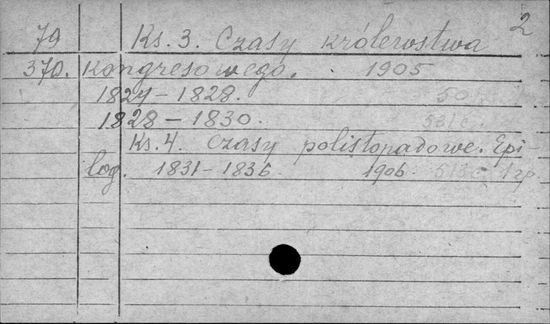 2
79 Ks. 3. Czasy królewstwa
370. Kongresowego. 1905
1824 – 1828.
1828 – 1830.
Ks. 4. Czasy polistopadowe. Epi-
log. 1831 – 1836. 1906.